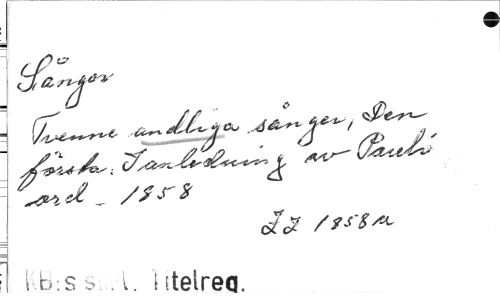 Sånger
Tvenne andliga sånger, Den
första: I anledning av Pauli
ord - 1858
1858
KB:s Titelreg.